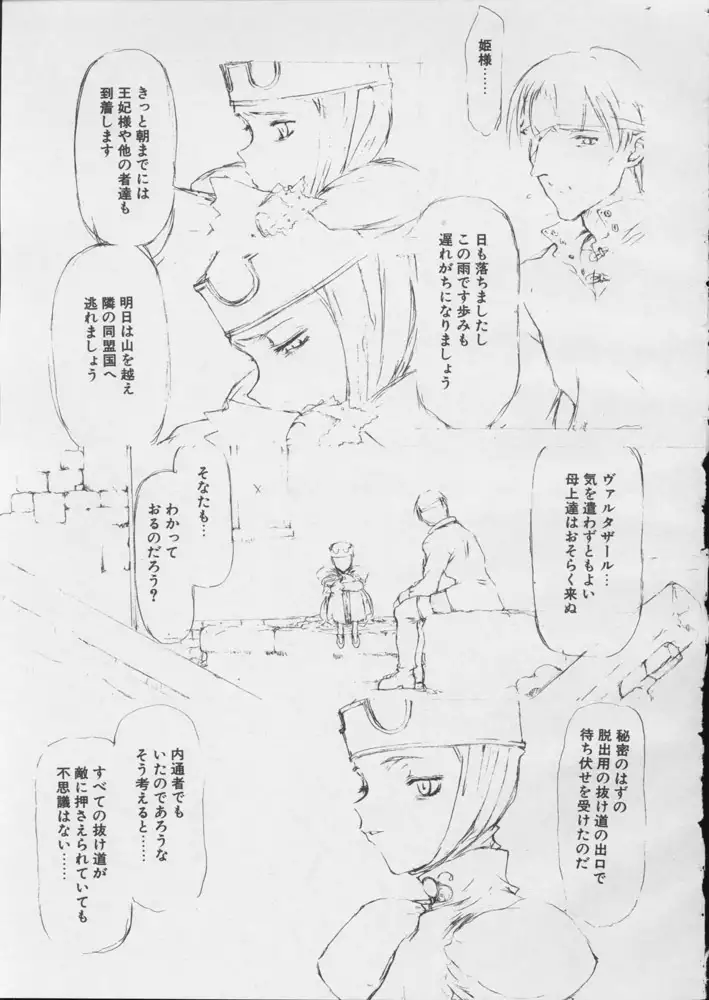 姫様……
日も落ちましたし
この雨です歩みも
遅れがちになりましょう
きっと朝までには
王妃様や他の者達も
到着します
明日は山を越え
隣の同盟国へ
逃れましょう
ヴァルタザール…
気を遣わずともよい
母上達はおそらく来ぬ
そなたも…
わかって
おるのだろう?
秘密のはずの
脱出用の抜け道の出口で
待ち伏せを受けたのだ
内通者でも
いたのであろうな
そう考えると……
すべての抜け道が
敵に押さえられていても
不思議はない……